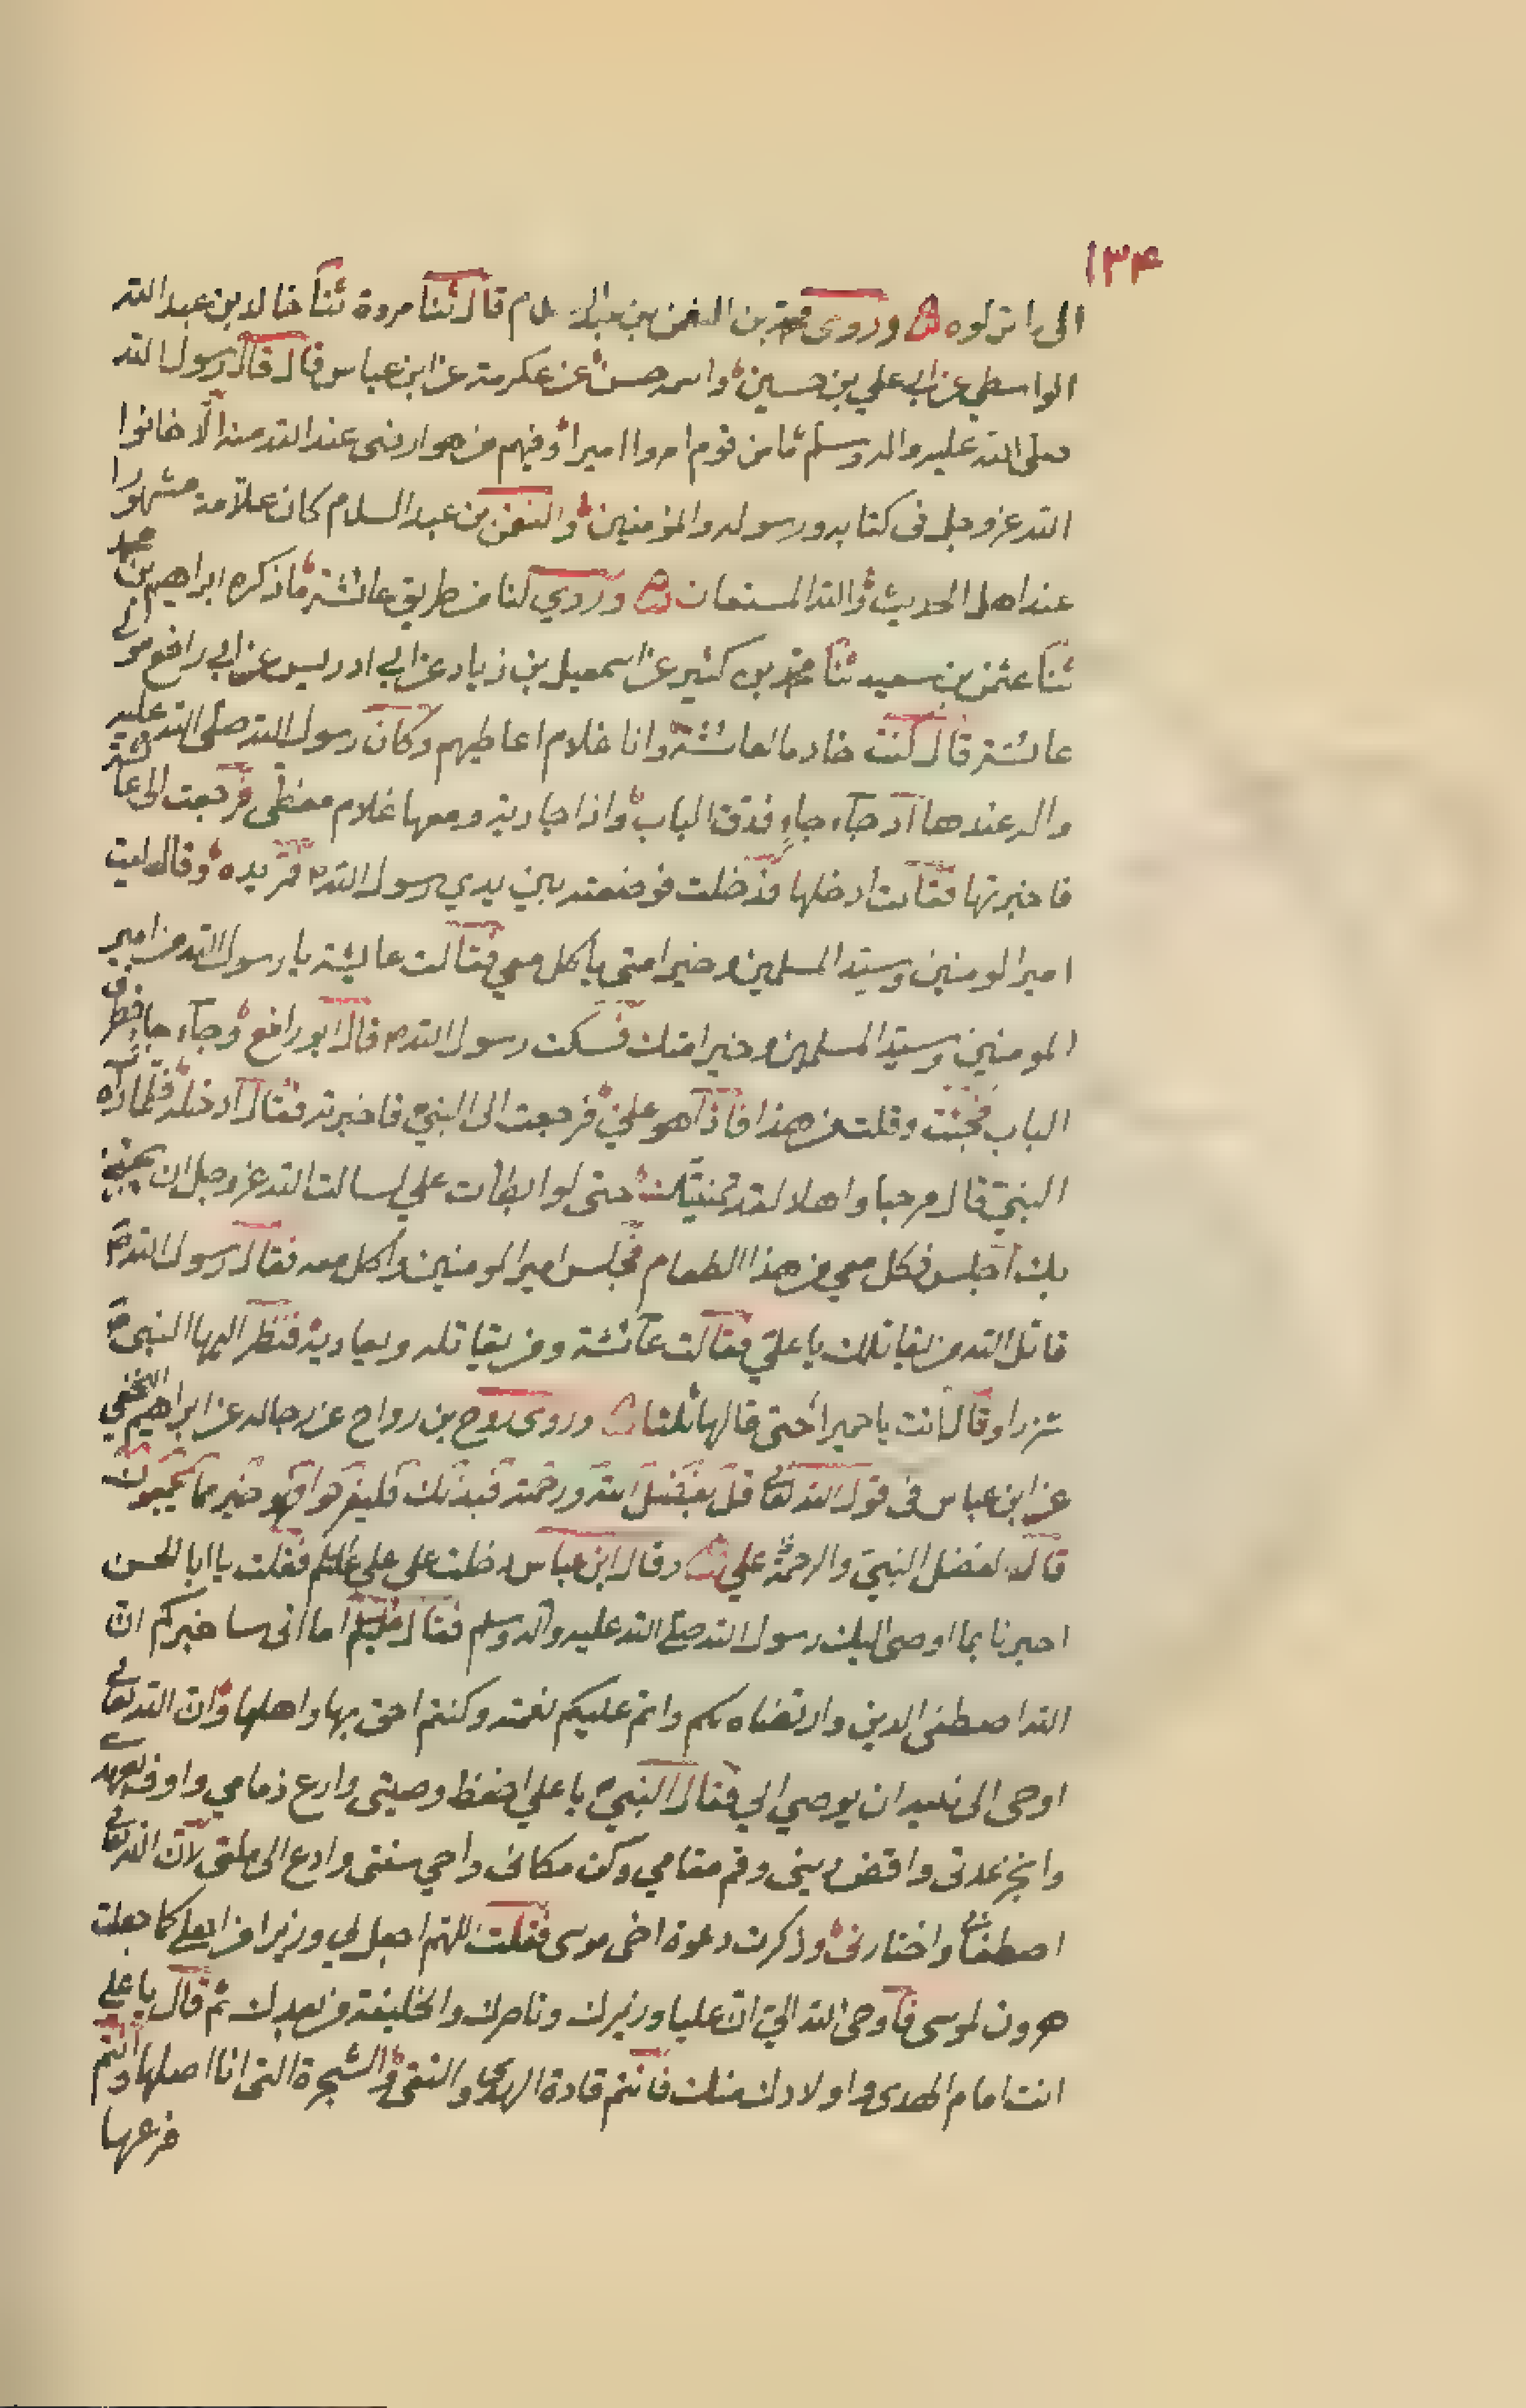 ١٣۴
الى ان تزلوه وروى محمد بن النعمن بن عبد السلام قال ثنا مردة ثنا خالد بن عبد الله
الواسطي عن ابي علي بن حسين واسمه حسن عن عكرمة عن ابن عباس قال قال رسول الله
صلى الله عليه واله وسلم ما من قوم امروا اميرا وفيهم من هو ارضى عند الله منه الّا خانوا
الله عز وجل فى كتابه ورسوله والمؤمنين والنعمن بن عبد السلام كان علّامة مشهورا
عند اهل الحديث والله المستعان وروي لنا من طريق عائشة ما ذكره ابراهيم بن محمد
ثنا عثمن بن سعيد ثنا محمد بن كثير عن اسمعيل بن زياد عن ابي ادريس عن ابي رافع مولى
عائشة قال كنت خادما لعائشة وانا غلام اعاطيهم وكان رسول الله صلى الله عليه
واله عندها اذ جآء جاءٍ فدق الباب واذا جارية ومعها غلام مغطّى فرجعت الى عائشة
فاخبرتها فقالت ادخلها فدخلت فوضعته بين يدي رسول الله ص فمد يده وقال ليت
امير المومنين وسيّد المسلمين وخير امتى يأكل معي فقالت عايشة يا رسول الله من امير
المومنين وسيّد المسلمين وخير امتك فسكت رسول الله ص قال ابو رافع وجآء جاء فطرق
الباب فجئت وقلت من هذا فاذا هو علي فرجعت الى النبي فاخبرته فقال ادخله فلما رآه
النبيّ قال مرحبا واهلا لقد تمنيتك حتى لو ابطأت علي لسالت الله عز وجل ان يجيئني
بك اجلس فكل معي من هذا الطعام فجلس امير المومنين واكل معه فقال رسول الله ص
قاتل الله من يقاتلك يا علي فقالت عائشة ومن يقاتله ويعاديه فنظر اليها النبى ص
شزرا وقال انت يا حميرا حتى قالها ثلثا وروى روح بن رواح عن رجاله عن ابراهيم النخعي
عن ابن عباس فى قول الله تعالى قل بفضل الله ورحمته فبذلك فليفرحوا هو خير مما يجمعون
قال بفضل النبيّ والرحمة علي وقال ابن عباس دخلت على علي عليه السلم فقلت يا ابا الحسن
اخبرنا بما اوصى اليك رسول الله صلى الله عليه واله وسلم فقال عليه السلم اما انى ساخبركم انّ
الله اصطفى الدين وارتضاه لكم واتم عليكم نعمته وكنتم احق بها واهلها وان الله تعالى
اوحى الى نبيه ان يوصي الي فقال النبي يا علي احفظ وصيتى وارع ذمامي واوف بعهدي
وانجز عدتى واقض دينى وقم مقامي وكن مكانى واحي سنتى وادع الى ملتى لانّ الله تعالى
اصطفانى واختارنى وذكرت دعوة اخى موسى فقلت اللهم اجعل لي وزيرا من اهلي كما جعلت
هرون لموسى فاوحى الله اليّ انّ عليا وزيرك وناصرك والخليفة من بعدك ثم قال يا علي
انت امام الهدى واولادك منك فانتم قادة الهدى والتقى والشجرة التى انا اصلها وانتم
فرعها